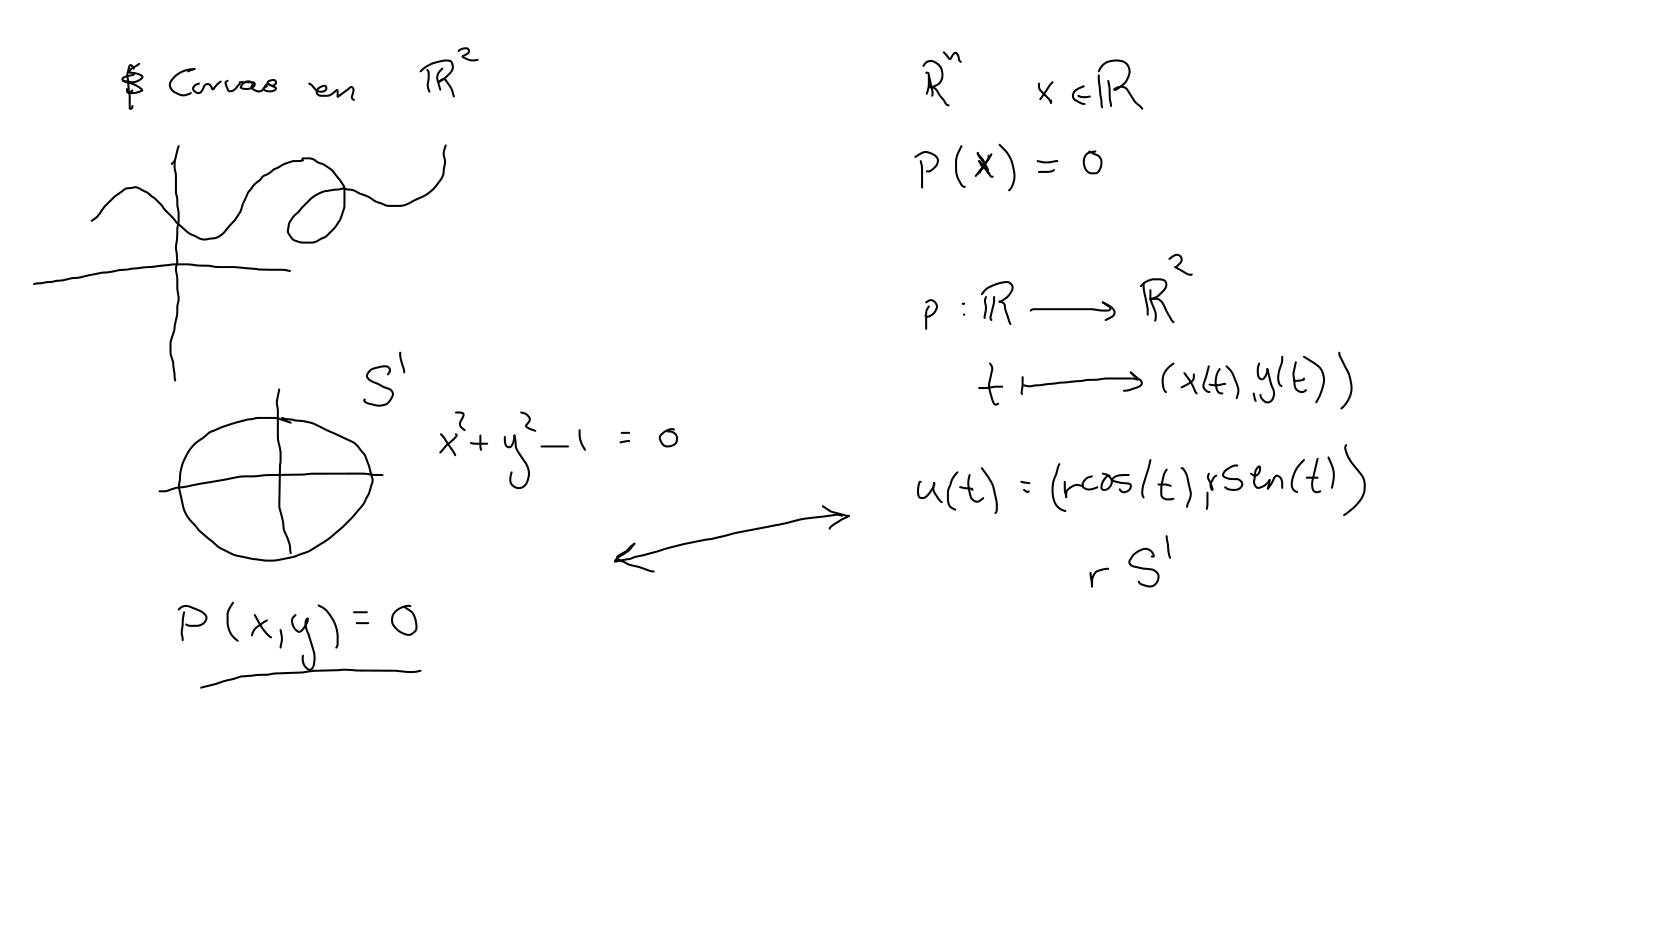 § Curvas en ℝ²
S¹
x² + y² − 1 = 0
P(x,y) = 0
ℝⁿ x ∈ ℝ
P(x) = 0
p : ℝ ⟶ ℝ²
t ⟼ (x(t), y(t))
u(t) = (r cos(t), r sen(t))
r S¹